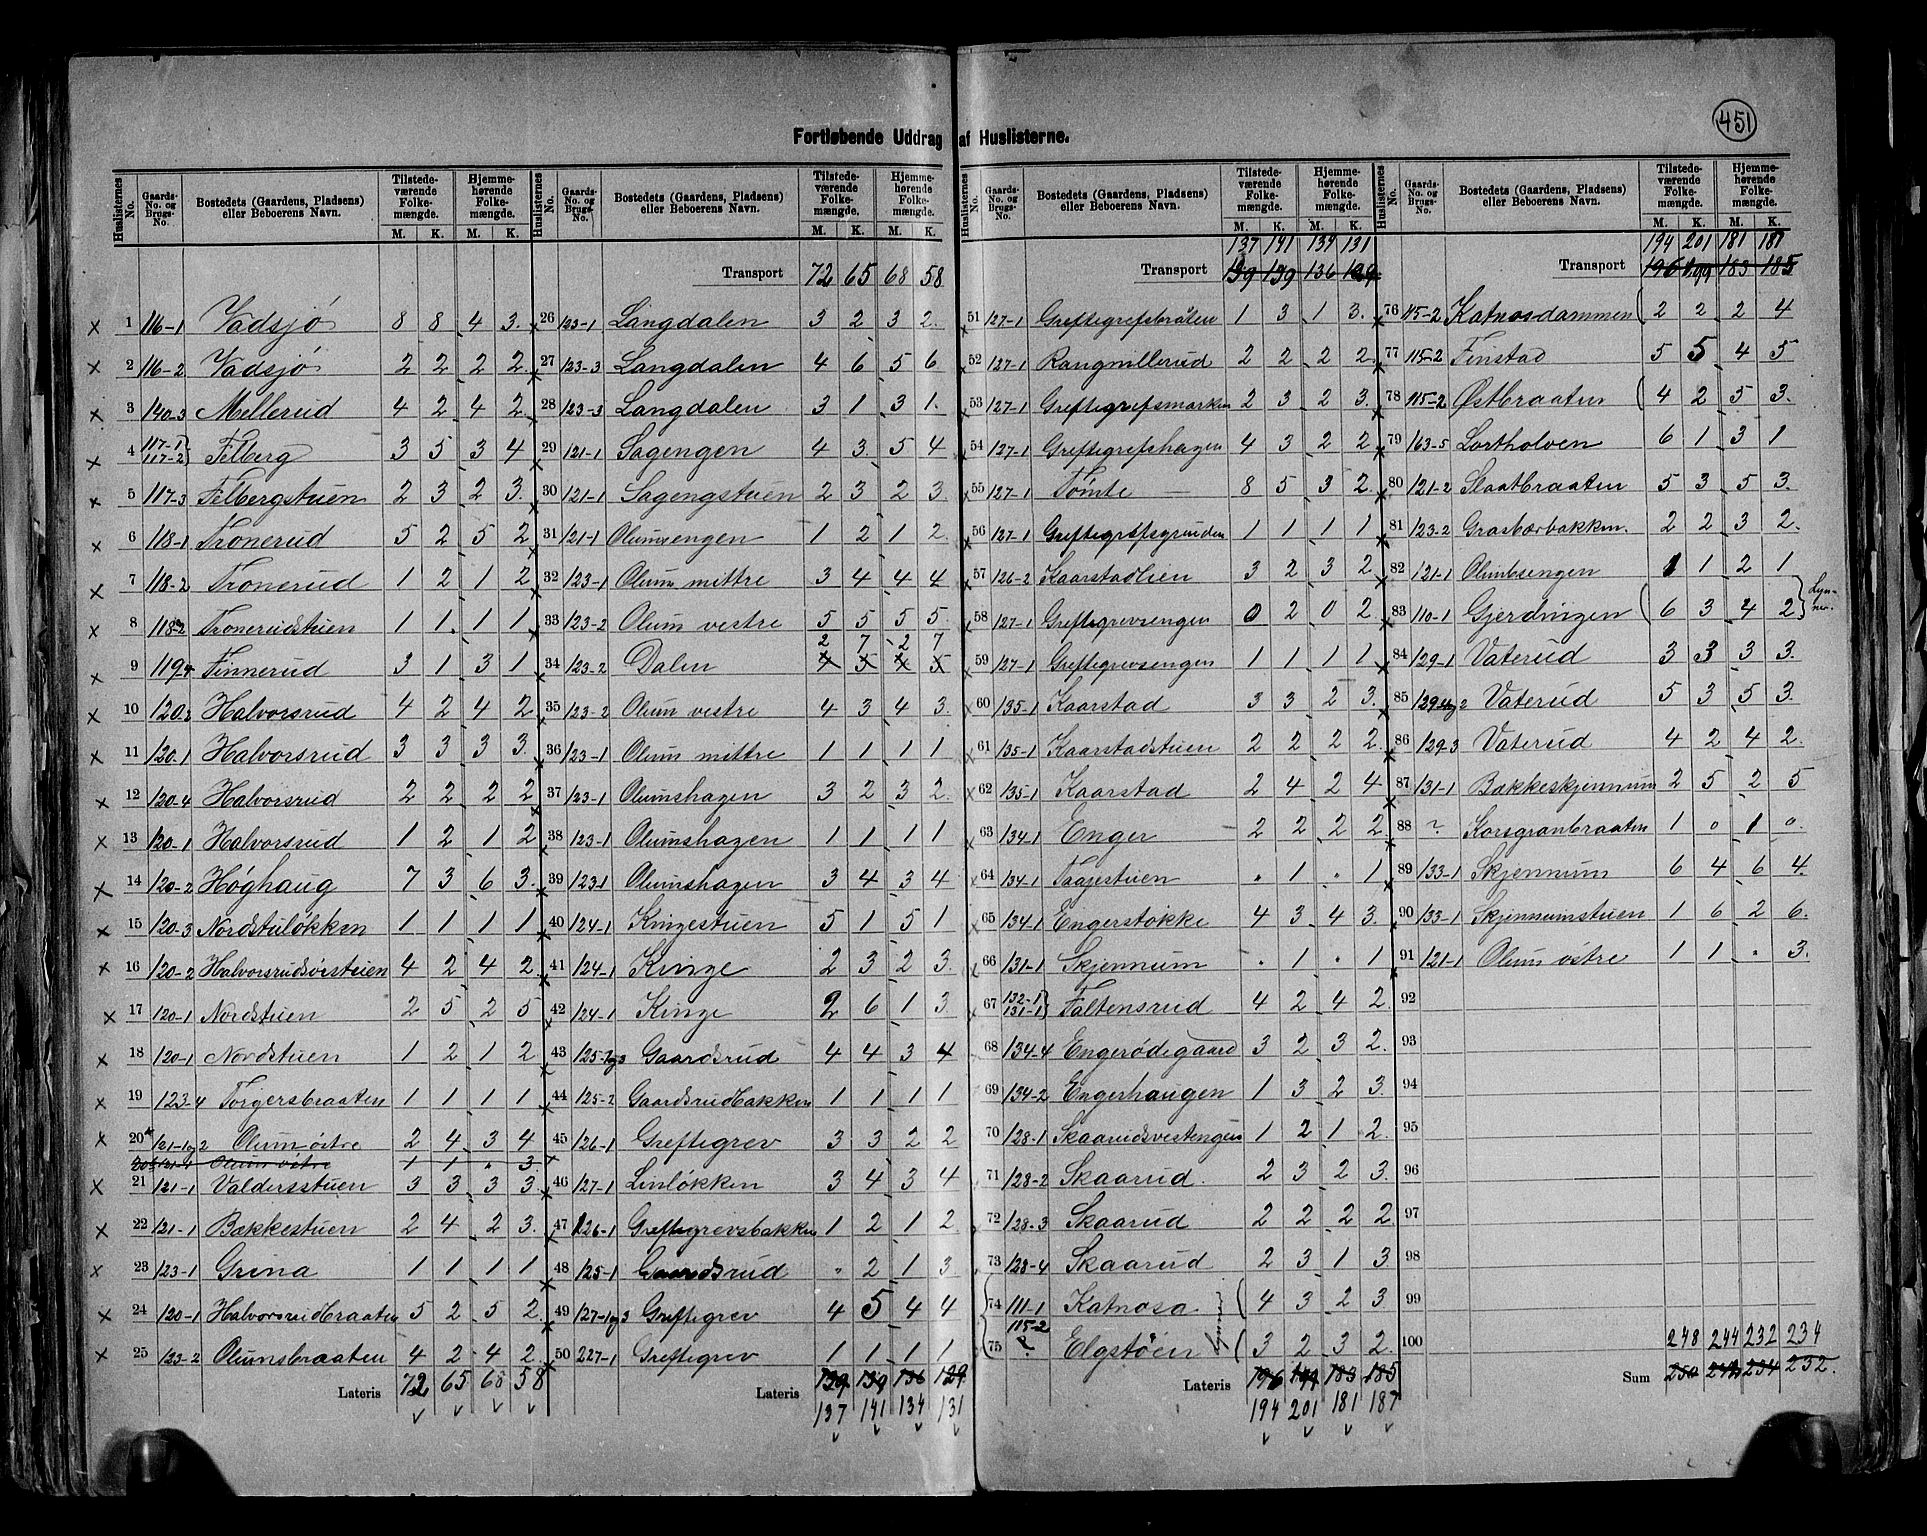 451
Fortløbende Uddrag af Huslisterne.
Huslisternes No. | Gaards-No. og Brugs-No. | Bostedets (Gaardens, Pladsens) eller Beboerens Navn. | Tilstede-værende Folke-mængde. M. K. | Hjemme-hørende Folke-mængde. M. K.
× 1 116-1 Vadsjø 8 8 4 3.
× 2 116-2 Vadsjø 2 2 2 2.
× 3 140-3 Mellerud 4 2 4 2.
× 4 117-1 117-2} Felberg 3 5 3 4
× 5 117-3 Felbergstuen 2 3 2 3.
× 6 118-1 Tronerud 5 2 5 2
× 7 118-2 Tronerud 1 2 1 2
× 8 118-2 Tronerudstuen 1 1 1 1
× 9 119-4 Finnerud 3 1 3 1
× 10 120-2 Halvorsrud 4 2 4 2
× 11 120-1 Halvorsrud 3 3 3 3.
× 12 120-4 Halvorsrud 2 2 2 2
× 13 120-1 Halvorsrud 1 2 1 2
× 14 120-2 Høghaug 7 3 6 3.
× 15 120-3 Nordstuløkken 1 1 1 1
× 16 120-2 Halvorsrudsvestuen 4 2 4 2.
× 17 120-1 Nordstuen 2 5 2 5
× 18 120-1 Nordstuen 1 2 1 2
× 19 123-4 Torgersbraaten 1 1 1 1
× 20 121-1og2 Olum østre 2 4 3 4
121-1 Olum østre 1 1 " 3.
× 21 121-1 Valdersstuen 3 3 3 3
× 22 121-1 Bækkestuen 2 4 2 3.
× 23 123-1 Grina 1 1 1 1
× 24 120-1 Halvorsrudbraaten 5 2 5 2.
× 25 123-2 Olumsbraaten 4 2 4 2
Lateris 72 65 68 58
Huslisternes No. | Gaards-No. og Brugs-No. | Bostedets (Gaardens, Pladsens) eller Beboerens Navn. | Tilstede-værende Folke-mængde. M. K. | Hjemme-hørende Folke-mængde. M. K.
Transport 72 65 68 58
× 26 123-1 Langdalen 3 2 3 2.
× 27 123-3 Langdalen 4 6 5 6
× 28 123-3 Langdalen 3 1 3 1.
× 29 121-1 Sagengen 4 3. 5 4
× 30 121-1 Sagengstuen 2 3 2 3
× 31 121-1 Olumsengen 1 2 1 2.
× 32 123-1 Olum mittre 3 4 4 4
× 33 123-2 Olum vestre 5 5 5 5.
2 7 2 7
× 34 123-2 Dalen 4 5 4 5
× 35 123-2 Olum vestre 4 3 4 3.
× 36 123-1 Olum mittre 1 1 1 1
× 37 123-1 Olumshagen 3 2 3 2.
× 38 123-1 Olumshagen 1 1 1 1
× 39 123-1 Olumshagen 3 4 3 4
× 40 124-1 Kingestuen 5 1 5 1
× 41 124-1 Kinge 2 3 2 3.
× 42 124-1 Kinge 2 6 1 3
× 43 125-1og3 Gaardsrud 4 4 3 4
× 44 125-2 Gaardsrudbakken 1 1 1 1
× 45 126-1 Greftegrev 3 3 2 2
× 46 127-1 Linløkken 3 4 3 4
× 47 126-1 Greftegrevsbakken 1 2 1 2
× 48 125-1 Gaardsrud " 2 1 3
× 49 127-1og3 Greftegrev 4 5 4 4
× 50 227-1 Greftegrev 1 1 1 1
Lateris 139 139 136 129
137 141 134 131
Huslisternes No. | Gaards-No. og Brugs-No. | Bostedets (Gaardens, Pladsens) eller Beboerens Navn. | Tilstede-værende Folke-mængde. M. K. | Hjemme-hørende Folke-mængde. M. K.
137 141 134 131
Transport 139 139 136 129
51 127-1 Greftegrefsbråten 1 3 1 3.
× 52 127-1 Rangnillerud 2 2 2 2
× 53 127-1 Greftegrefsmarken 2 3 2 3.
× 54 127-1 Greftegrefshagen 4 3 2 2
× 55 127-1 Tømte — 8 5 3 2.
× 56 127-1 Greftegrefsgrinden 1 1 1 1
× 57 126-2 Kaarstadlien 3 2 3 2
× 58 127-1 Greftegrevsengen 0 2 0 2
× 59 127-1 Greftegrevsengen 1 1 1 1
× 60 135-1 Kaarstad 3 3 2 3.
× 61 135-1 Kaarstadstuen 2 2 2 2.
× 62 135-1 Kaarstad 2 4 2 4
× 63 134-1 Enger 2 2 2 2
× 64 134-1 Taajestuen " 1 " 1
× 65 134-1 Engerstøkke 4 3 4 3.
× 66 131-1 Skjennum " 1 " 1
× 67 132-1 131-1} Faltensrud 4 2 4 2.
68 134-4 Engerødegaard 3 2 3 2.
69 134-2 Engerhaugen 1 3 2 3.
70 128-1 Skaarudsvestengen 1 2 1 2.
71 128-2 Skaarud. 2 3 2 3.
72 128-3 Skaarud 2 2 2 2.
73 128-4 Skaarud 2 3 1 3
74 111-1 Katnosa 4 3 2 3
75 115-2 ? Elgstøen 3 2 3 2.
Lateris 196 199 183 185
194 201 181 187
Huslisternes No. | Gaards-No. og Brugs-No. | Bostedets (Gaardens, Pladsens) eller Beboerens Navn. | Tilstede-værende Folke-mængde. M. K. | Hjemme-hørende Folke-mængde. M. K.
194 201 181 187
Transport 196 199 183 185
76 115-2 Katnosdammen 2 2 2 4
77 115-2 Finstad 5 5 4 5
78 115-2 Østbraaten 4 2 5 3.
79 163-5 Lortholven 6 1 3 1
80 121-2 Slaatbraaten 5 3 5 3.
81 123-2 Grasbærbakken. 2 2 3 2.
82 121-1 Olumbsengen 1 1 2 1
83 110-1 Gjerdningen 6 3 4 2 } Lyn-ner.
84 129-1 Vaterud 3 3 3 3.
85 129-4og2 Vaterud 5 3 5 3.
86 129-3 Vaterud 4 2 4 2.
87 131-1 Bækkeskjennum 2 5 2 5
88 ? Korsgranbraaten 1 0 1 0.
89 133-1 Skjennum 6 4 6 4.
90 133-1 Skjennumstuen 1 6 2 6.
91 121-1 Olum østre 1 1 " 3.
92
93
94
95
96
97
98
99
100
248 244 232 234
Sum 250 242 234 232.